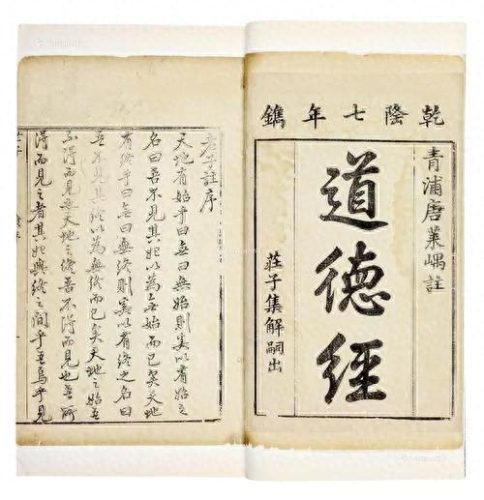 乾隆七年鐫
青浦唐萊嵎註
道德經
莊子集解嗣出
老子註序
天地有始乎曰無曰無始則奚以有始之
名曰吾不見其始以為無始而已矣天地
有終乎曰無曰無終則奚以有終之名曰
吾不見其終以為無終而已矣天地之始吾
不得而見矣天地之終吾不得而見也吾所
得而見之者其始與終之間乎